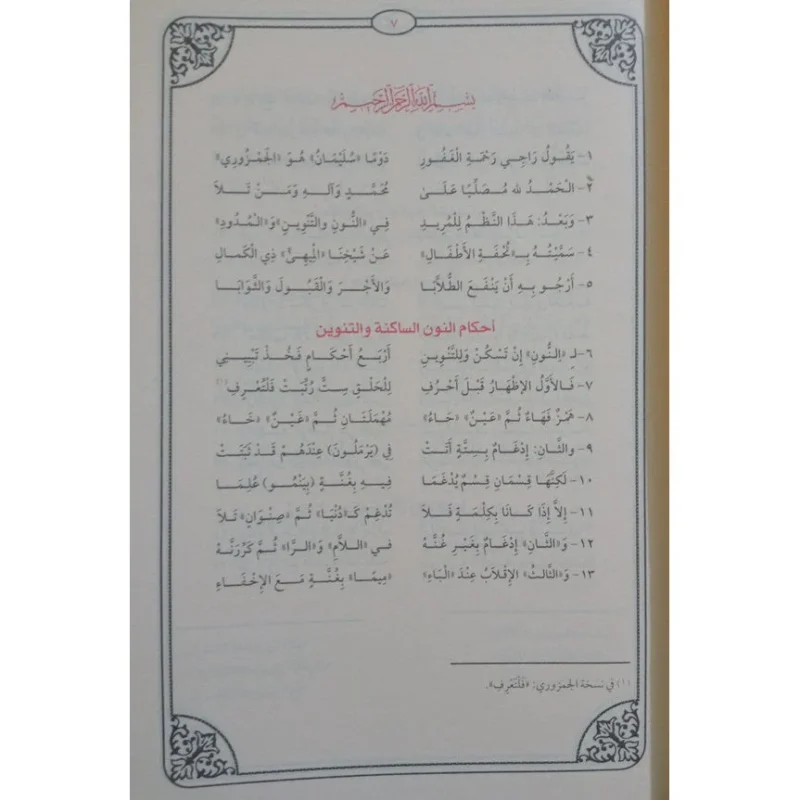 ٧
بسم الله الرحمن الرحيم
١- يَقُولُ رَاجِي رَحْمَةِ الْغَفُورِ دَوْمًا «سُلَيْمَانُ» هُوَ «الْجَمْزُورِي»
٢- الْحَمْدُ لله مُصَلِّيًا عَلَىٰ مُحَمَّدٍ وَآلِهِ وَمَنْ تَلاَ
٣- وَبَعْدُ: هَذَا النَّظْمُ لِلْمُرِيدِ فِي «النُّونِ والتَّنْوِينِ» وَ«الْمُدُودِ»
٤- سَمَّيْتُهُ بِـ«تُحْفَةِ الأَطْفَالِ» عَنْ شَيْخِنَا «الْمِيهِىِّ» ذِي الْكَمَالِ
٥- أَرْجُو بِهِ أَنْ يَنْفَعَ الطُّلاَّبَا وَالأَجْرَ وَالْقَبُولَ وَالثَّوَابَا
أحكام النون الساكنة والتنوين
٦- لِـ «النُّونِ» إِنْ تَسْكُنْ وَلِلتَّنْوِينِ أَرْبَعُ أَحْكَامٍ فَخُذْ تَبْيِينِي
٧- فَالأَوَّلُ الإِظْهَارُ قَبْلَ أَحْرُفِ لِلْحَلْقِ سِتٌّ رُتِّبَتْ فَلْتُعْرَفِ(١)
٨- هَمْزٌ فَهَاءٌ ثُمَّ «عَيْنٌ» «حَاءُ» مُهْمَلَتَانِ ثُمَّ «غَيْنٌ» «خَاءُ»
٩- والثَّانِ: إِدْغَامٌ بِسِتَّةٍ أَتَتْ فِي (يَرْمَلُونَ) عِنْدَهُمْ قَدْ ثَبَتَتْ
١٠- لَكِنَّهَا قِسْمَانِ قِسْمٌ يُدْغَمَا فِيهِ بِغُنَّةٍ (بِيَنْمُو) عُلِمَا
١١- إِلاَّ إِذَا كَانَا بِكِلْمَةٍ فَلاَ تُدْغِمْ كَـ«دُنْيَا» ثُمَّ «صِنْوَانٍ» تَلاَ
١٢- وَ«الثَّانِ» إِدْغَامٌ بِغَيْرِ غُنَّهْ في «اللاَّمِ» وَ«الرَّا» ثُمَّ كَرِّرَنَّهْ
١٣- وَ«الثَّالثُ» الإِقْلاَبُ عِنْدَ «الْبَاءِ» «مِيمًا» بِغُنَّةٍ مَعَ الإِخْفَاءِ
(١) في نسخة الجمزوري: «فَلْتَعْرِفِ».